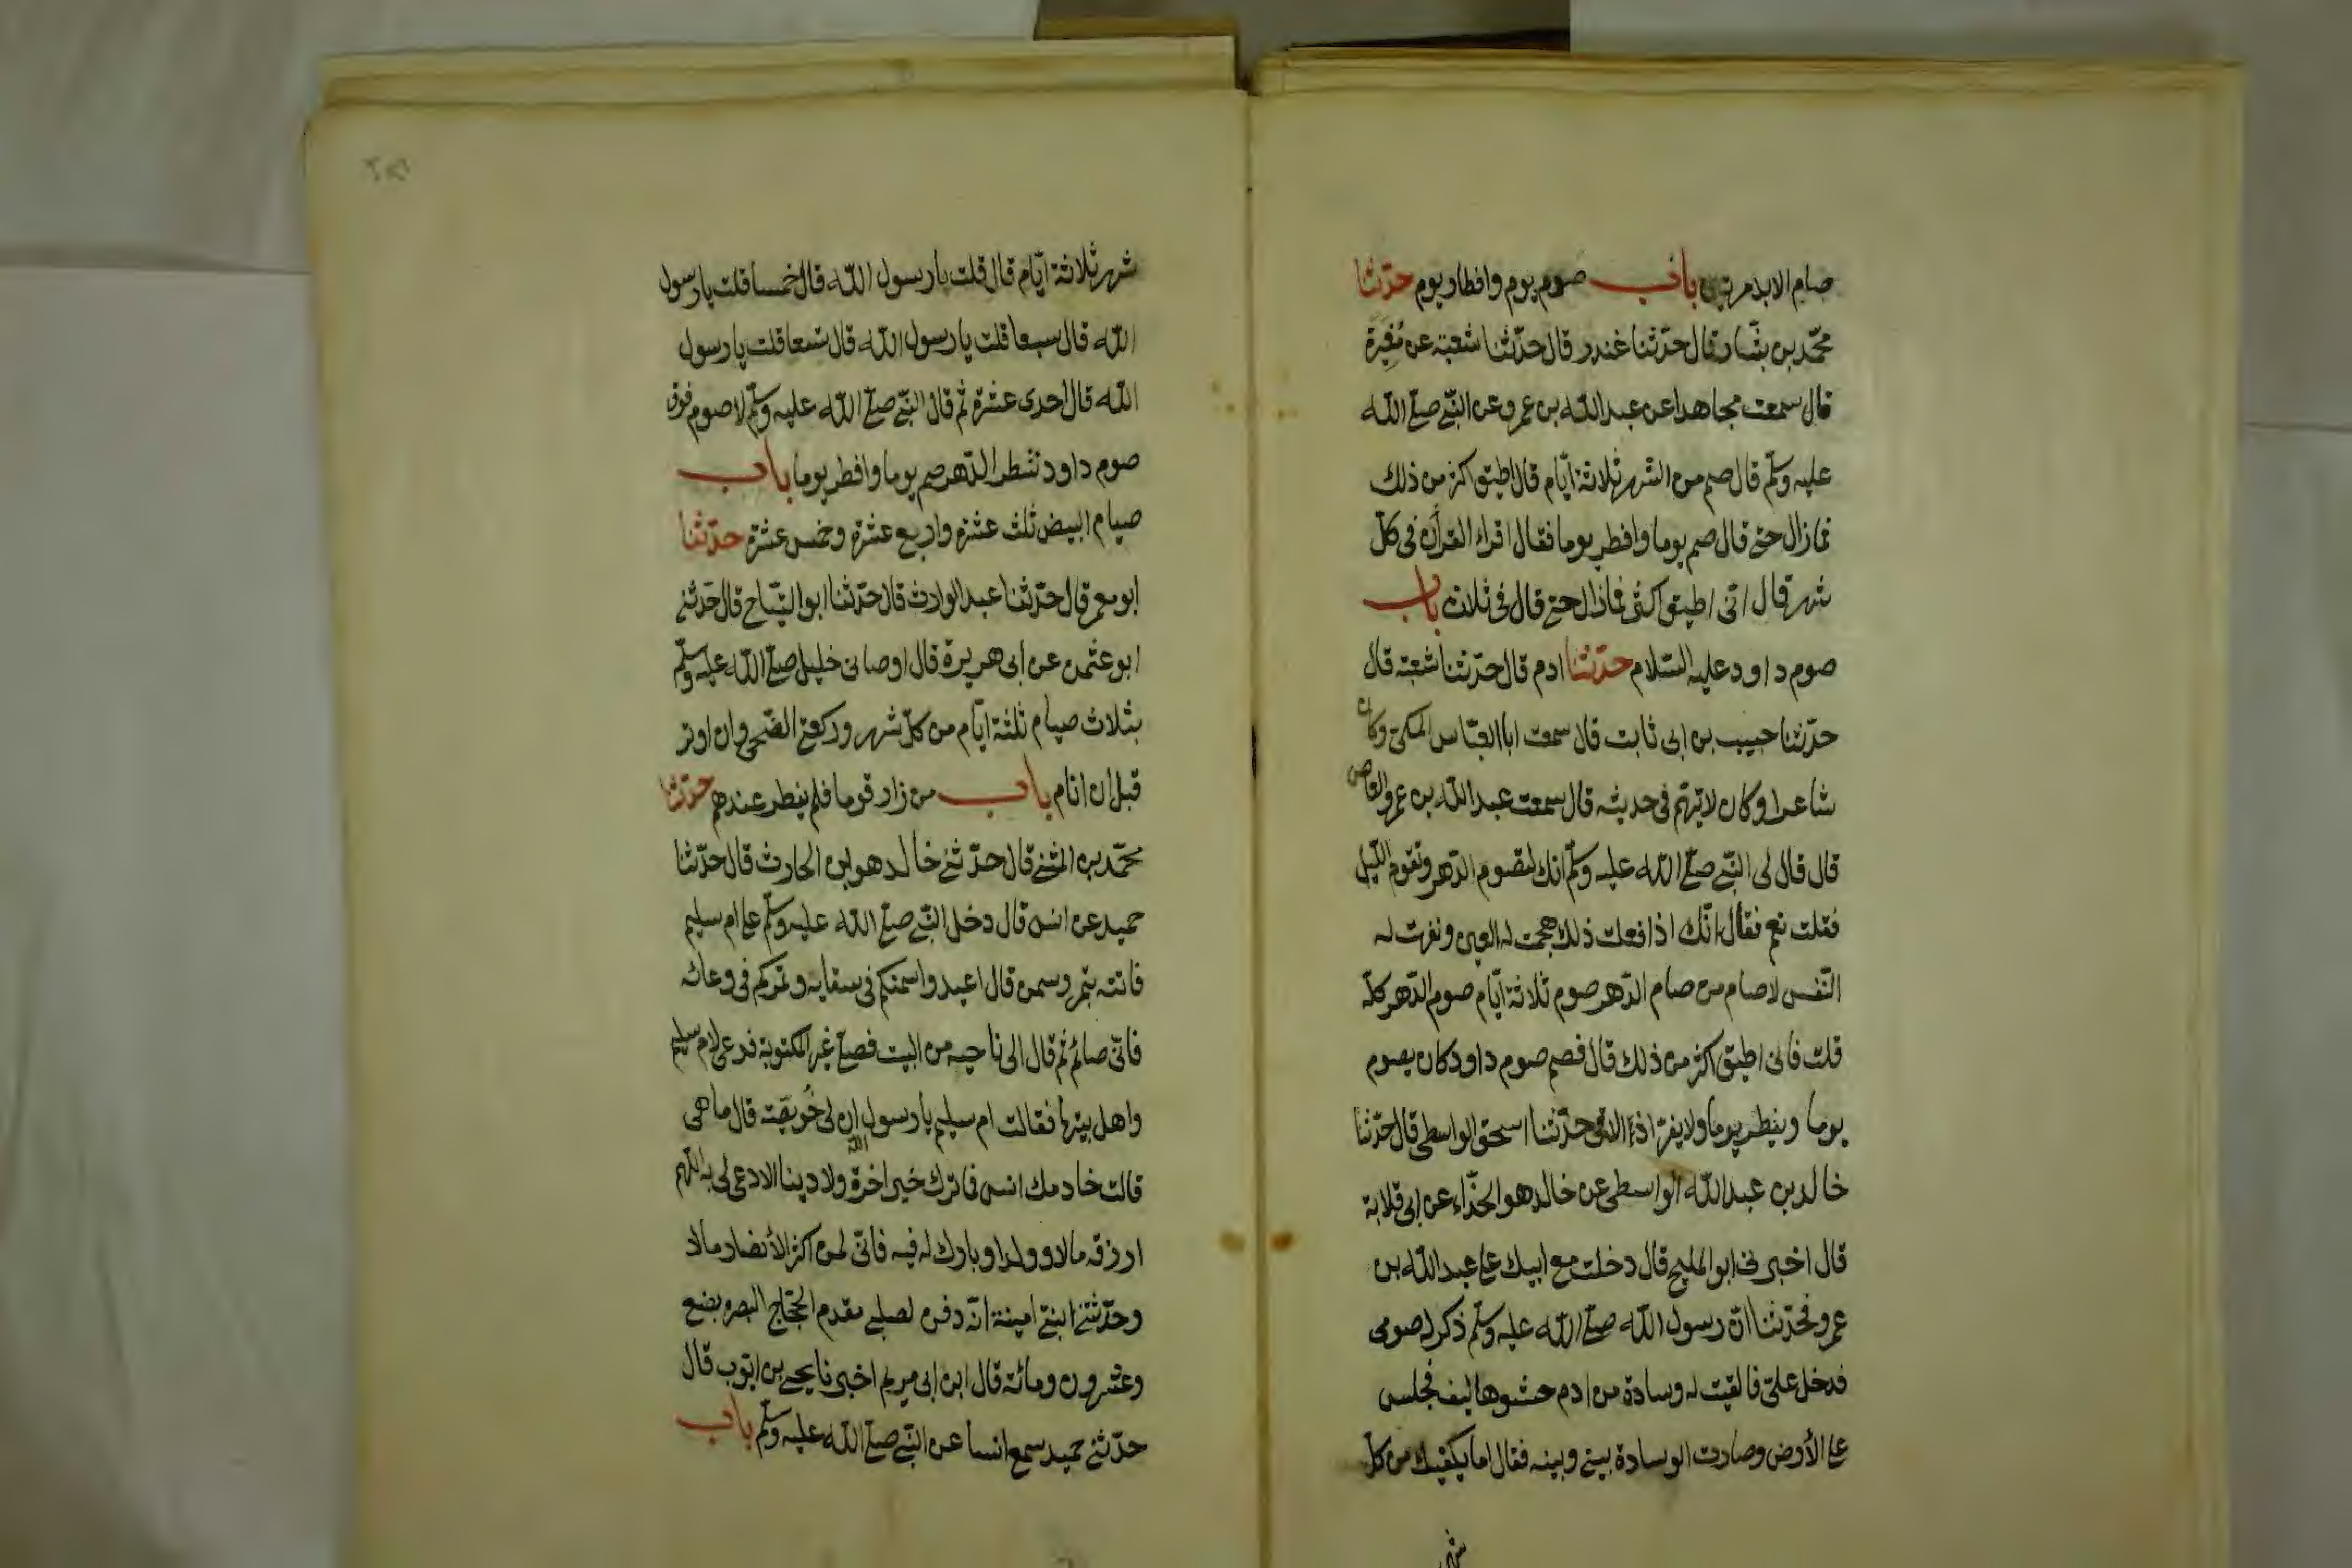 صام الابد مرتين باب صوم يوم وافطار يوم حدثنا
محمد بن بشار قال حدثنا غندر قال حدثنا شعبة عن مغيرة
قال سمعت مجاهدا عن عبد الله بن عمرو عن النبي صلى الله
عليه وسلم قال صم من الشهر ثلاثة ايام قال اطيق اكثر من ذلك
فما زال حتى قال صم يوما وافطر يوما فقال اقراء القرآن في كل
شهر قال اني اطيق اكثر فما زال حتى قال في ثلاث باب
صوم داود عليه السلام حدثنا ادم قال حدثنا شعبة قال
حدثنا حبيب بن ابي ثابت قال سمعت ابا العباس المكي وكان
شاعرا وكان لا يتهم في حديثه قال سمعت عبد الله بن عمرو العاص
قال قال لي النبي صلى الله عليه وسلم انك لتصوم الدهر وتقوم الليل
فقلت نعم فقال انك اذا فعلت ذلك هجمت له العين ونفهت له
النفس لا صام من صام الدهر صوم ثلاثة ايام صوم الدهر كله
قلت فاني اطيق اكثر من ذلك قال فصم صوم داود كان يصوم
يوما ويفطر يوما ولا يفر اذا لاقى حدثنا اسحق الواسطي قال حدثنا
خالد بن عبد الله الواسطي عن خالد هو الحذاء عن ابي قلابة
قال اخبرني ابو المليح قال دخلت مع ابيك على عبد الله بن
عمرو فحدثنا ان رسول الله صلى الله عليه وسلم ذكر له صومي
فدخل علي فالقيت له وسادة من ادم حشوها ليف فجلس
على الارض وصارت الوسادة بيني وبينه فقال اما يكفيك من كل
شهر
شهر ثلاثة ايام قال قلت يا رسول الله قال خمسا قلت يا رسول
الله قال سبعا قلت يا رسول الله قال تسعا قلت يا رسول
الله قال احدى عشرة ثم قال النبي صلى الله عليه وسلم لا صوم فوق
صوم داود شطر الدهر صم يوما وافطر يوما باب
صيام البيض ثلث عشرة واربع عشرة وخمس عشرة حدثنا
ابو معمر قال حدثنا عبد الوارث قال حدثنا ابو التياح قال حدثني
ابو عثمن عن ابي هريرة قال اوصاني خليلي صلى الله عليه وسلم
بثلاث صيام ثلثة ايام من كل شهر وركعتي الضحى وان اوتر
قبل ان انام باب من زار قوما فلم يفطر عندهم حدثنا
محمد بن المثنى قال حدثني خالد هو ابن الحارث قال حدثنا
حميد عن انس قال دخل النبي صلى الله عليه وسلم على ام سليم
فاتته بتمر وسمن قال اعيدوا سمنكم في سقايه وتمركم في وعائه
فاني صائم ثم قال الى ناحية من البيت فصلى غير المكتوبة فدعى لام سليم
واهل بيتها فقالت ام سليم يا رسول الله ان لي خويصة قال ما هي
قالت خادمك انس فما ترك خير اخرة ولا دينا الا دعى لي به اللهم
ارزقه مالا وولدا وبارك له فيه فاني لمن اكثر الأنصار مالا
وحدثتني ابنتي امينة انه دفن لصلبي مقدم الحجاج البصرة بضع
وعشرون ومائة قال ابن ابي مريم اخبرنا يحيى بن ايوب قال
حدثني حميد سمع انسا عن النبي صلى الله عليه وسلم باب